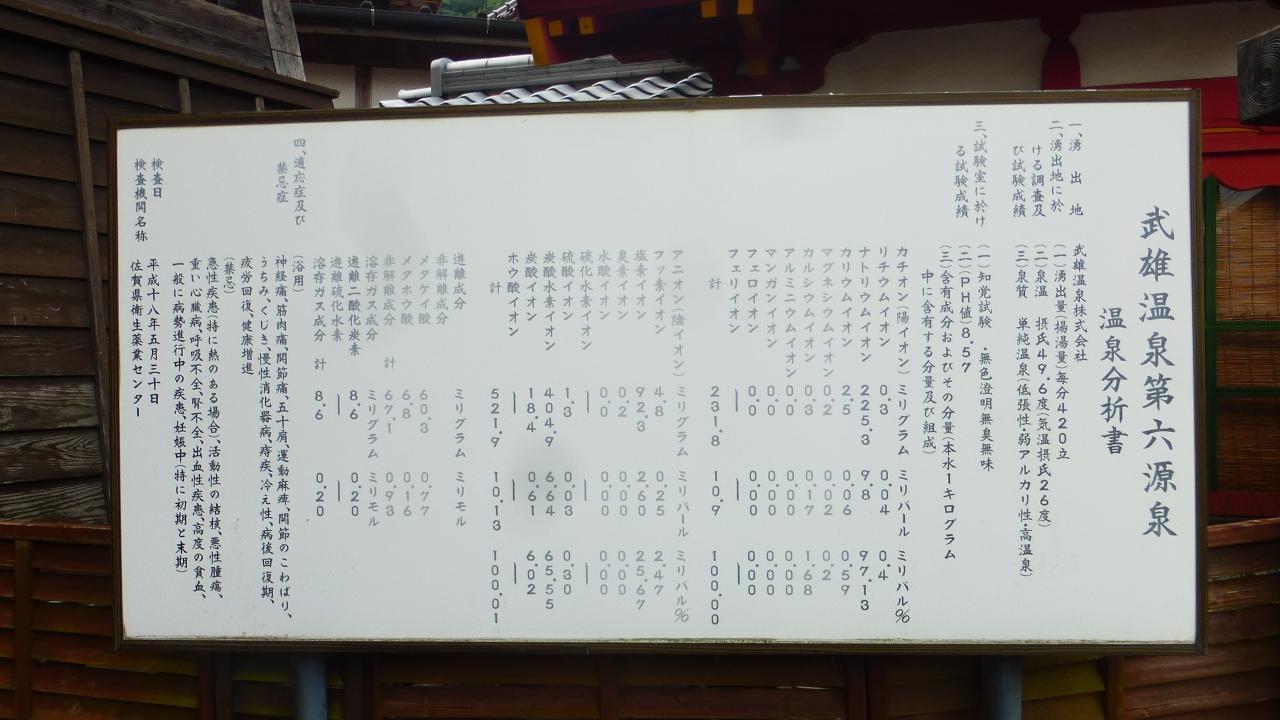 武雄温泉第六源泉
温泉分折書
一、湧出地
武雄温泉株式会社
二、湧出地に於
ける調査及
び試験成績
(一)湧出量(揚湯量)毎分420立
(二)泉温 摂氏49.6度(気温摂氏26度)
(三)泉質 単純温泉(低張性・弱アルカリ性・高温泉)
三、試験室に於け
る試験成績
(一)知覚試験 ・無色澄明無臭無味
(二)PH値(8.57
(三)含有成分およびその分量(本水一キログラム
中に含有する分量及び組成)
カチオン(陽イオン) ミリグラム ミリバール ミリバル%
リチウムイオン 0.3 0.04 0.4
ナトリウムイオン 225.3 9.8 97.13
カリウムイオン 2.5 0.06 0.59
マグネシウムイオン 0.2 0.02 0.2
カルシウムイオン 3.3 0.17 1.68
アルミニウムイオン 0.0 0.00 0.00
マンガンイオン 0.0 0.00 0.00
フェロイオン 0.0 0.00 0.00
フェリイオン — — —
計 231.8 10.9 100.00
アニオン(陰イオン) ミリグラム ミリバール ミリバル%
フッ素イオン 4.8 0.25 2.47
塩素イオン 92.3 2.60 25.67
臭素イオン 0.2 0.00 0.00
水酸イオン 0.0 0.00 0.00
硫化水素イオン — — —
硫酸イオン 1.3 0.03 0.30
炭酸水素イオン 404.9 6.64 65.55
炭酸イオン 18.4 0.61 6.02
ホウ酸イオン — — —
計 521.9 10.13 100.01
遊離成分 ミリグラム ミリモル
非解離成分
メタケイ酸 60.3 0.77
メタホウ酸 6.8 0.16
非解離成分 計 67.1 0.93
溶存ガス成分 ミリグラム ミリモル
遊離二酸化炭素 8.6 0.20
遊離硫化水素 — —
溶存ガス成分 計 8.6 0.20
四、適応症及び
禁忌症
(浴用)
神経痛、筋肉痛、関節痛、五十肩、運動麻痺、関節のこわばり、
うちみ、くじき、慢性消化器病、痔疾、冷え性、病後回復期、
疲労回復、健康増進
(禁忌)
急性疾患(特に熱のある場合)、活動性の結核、悪性腫瘍、
重い心臓病、呼吸不全、腎不全、出血性疾患、高度の貧血、
一般に病勢進行中の疾患、妊娠中(特に初期と末期)
検査日 平成十八年五月三十日
検査機関名称 佐賀県衛生薬業センター